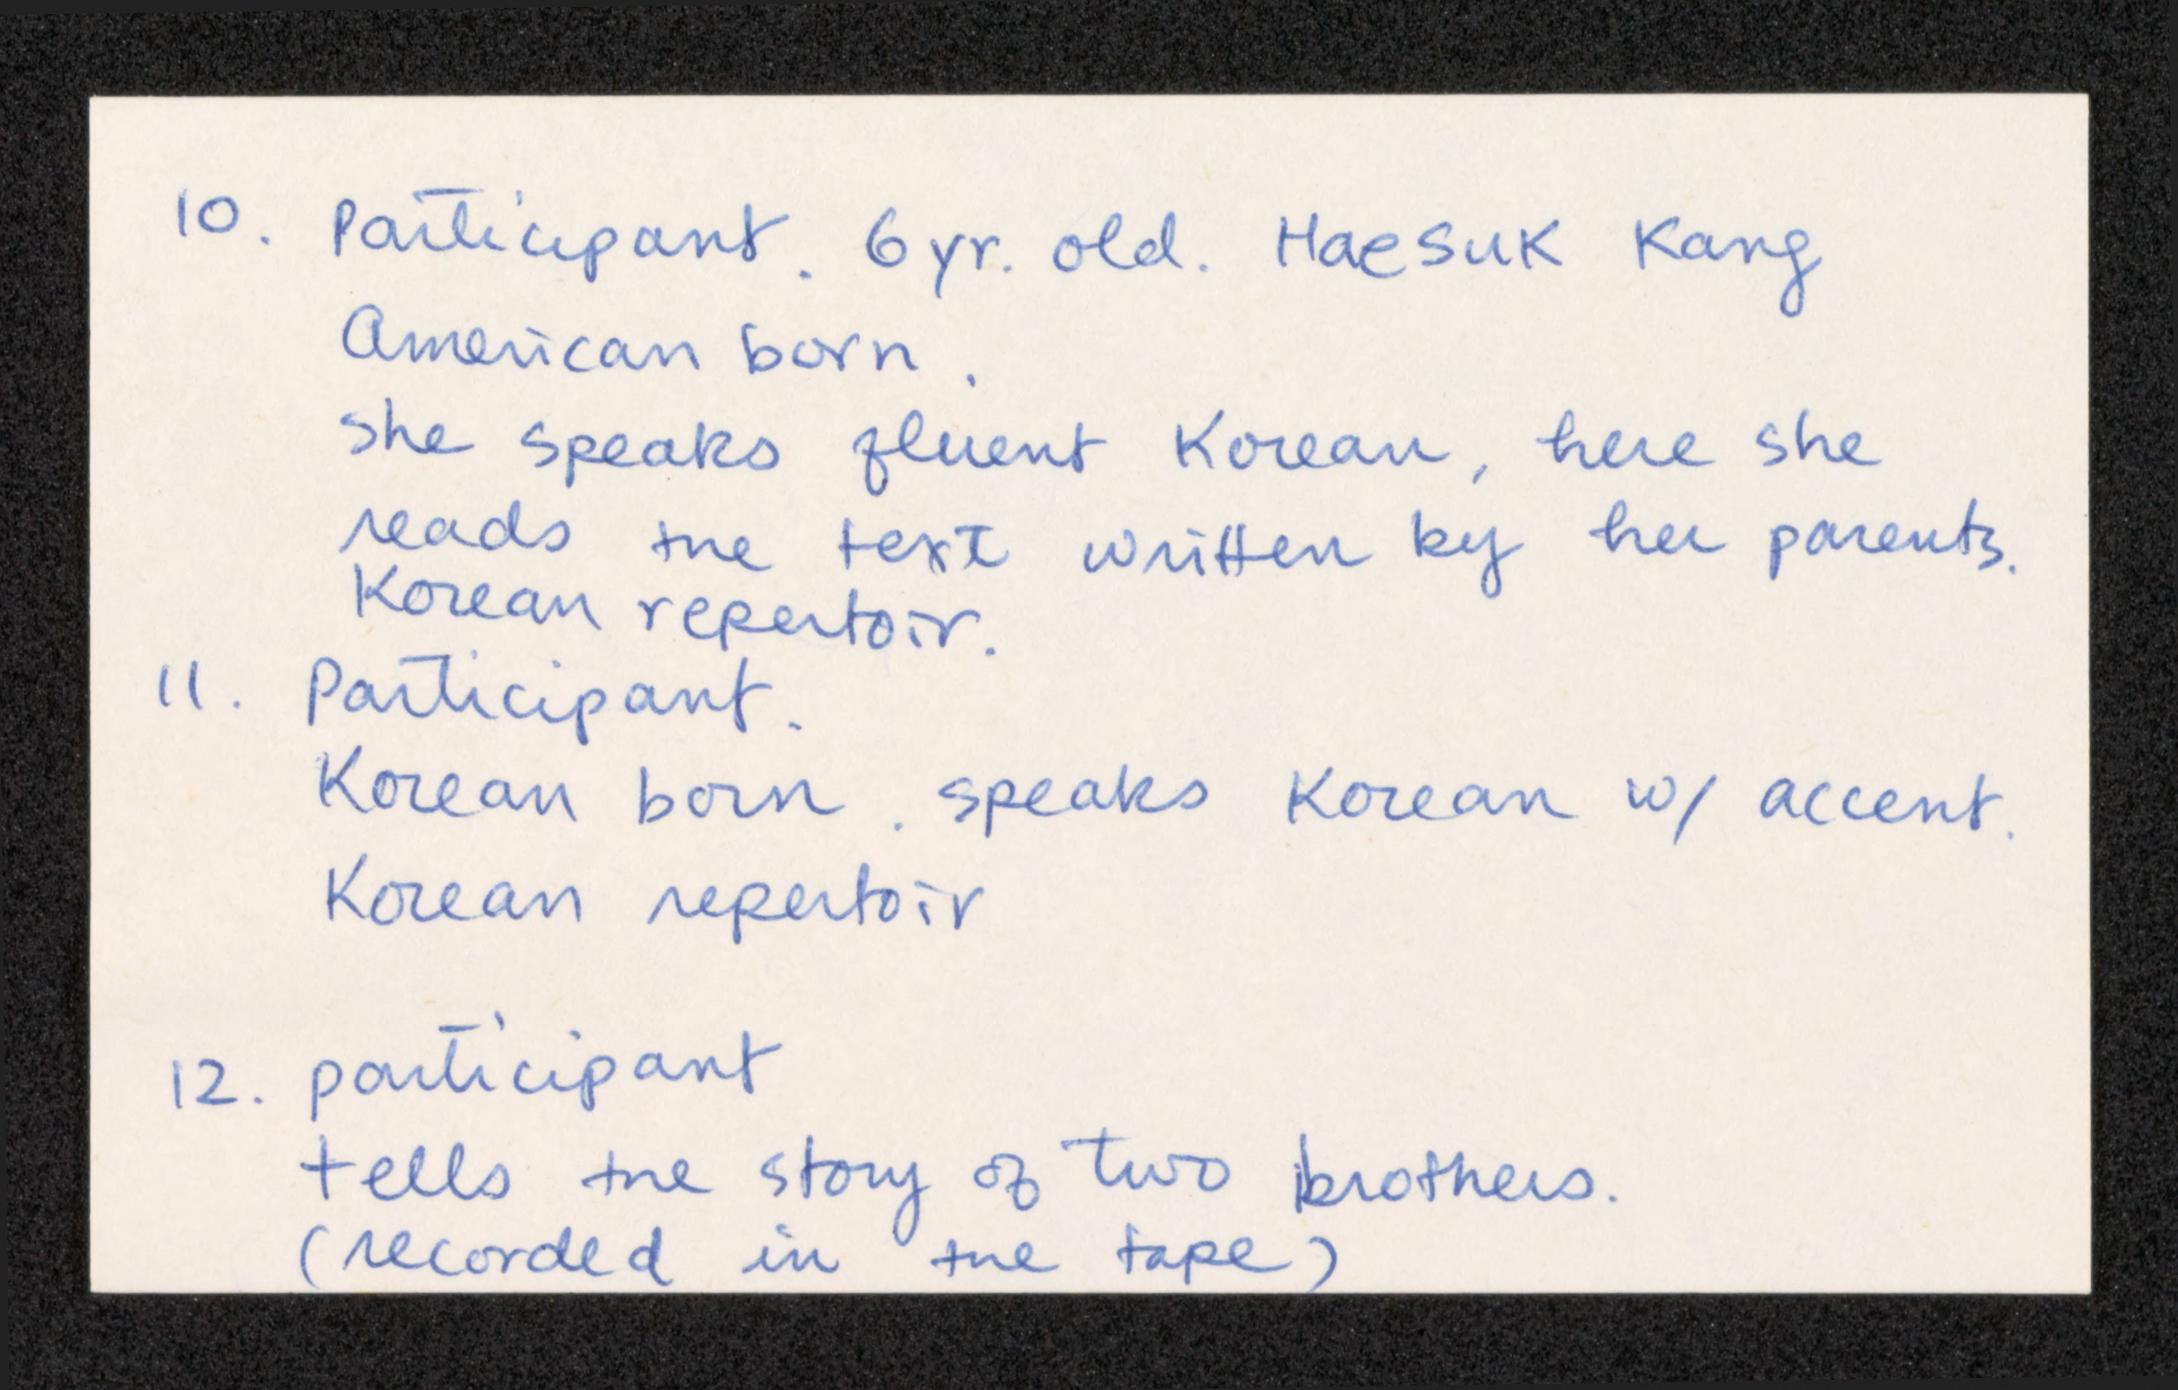 10. Participant. 6 yr. old. Haesuk Kang
American born.
she speaks fluent Korean, here she
reads the text written by her parents.
Korean repertoir.
11. Participant.
Korean born. speaks Korean w/ accent.
Korean repertoir
12. participant
tells the story of two brothers.
(recorded in the tape)